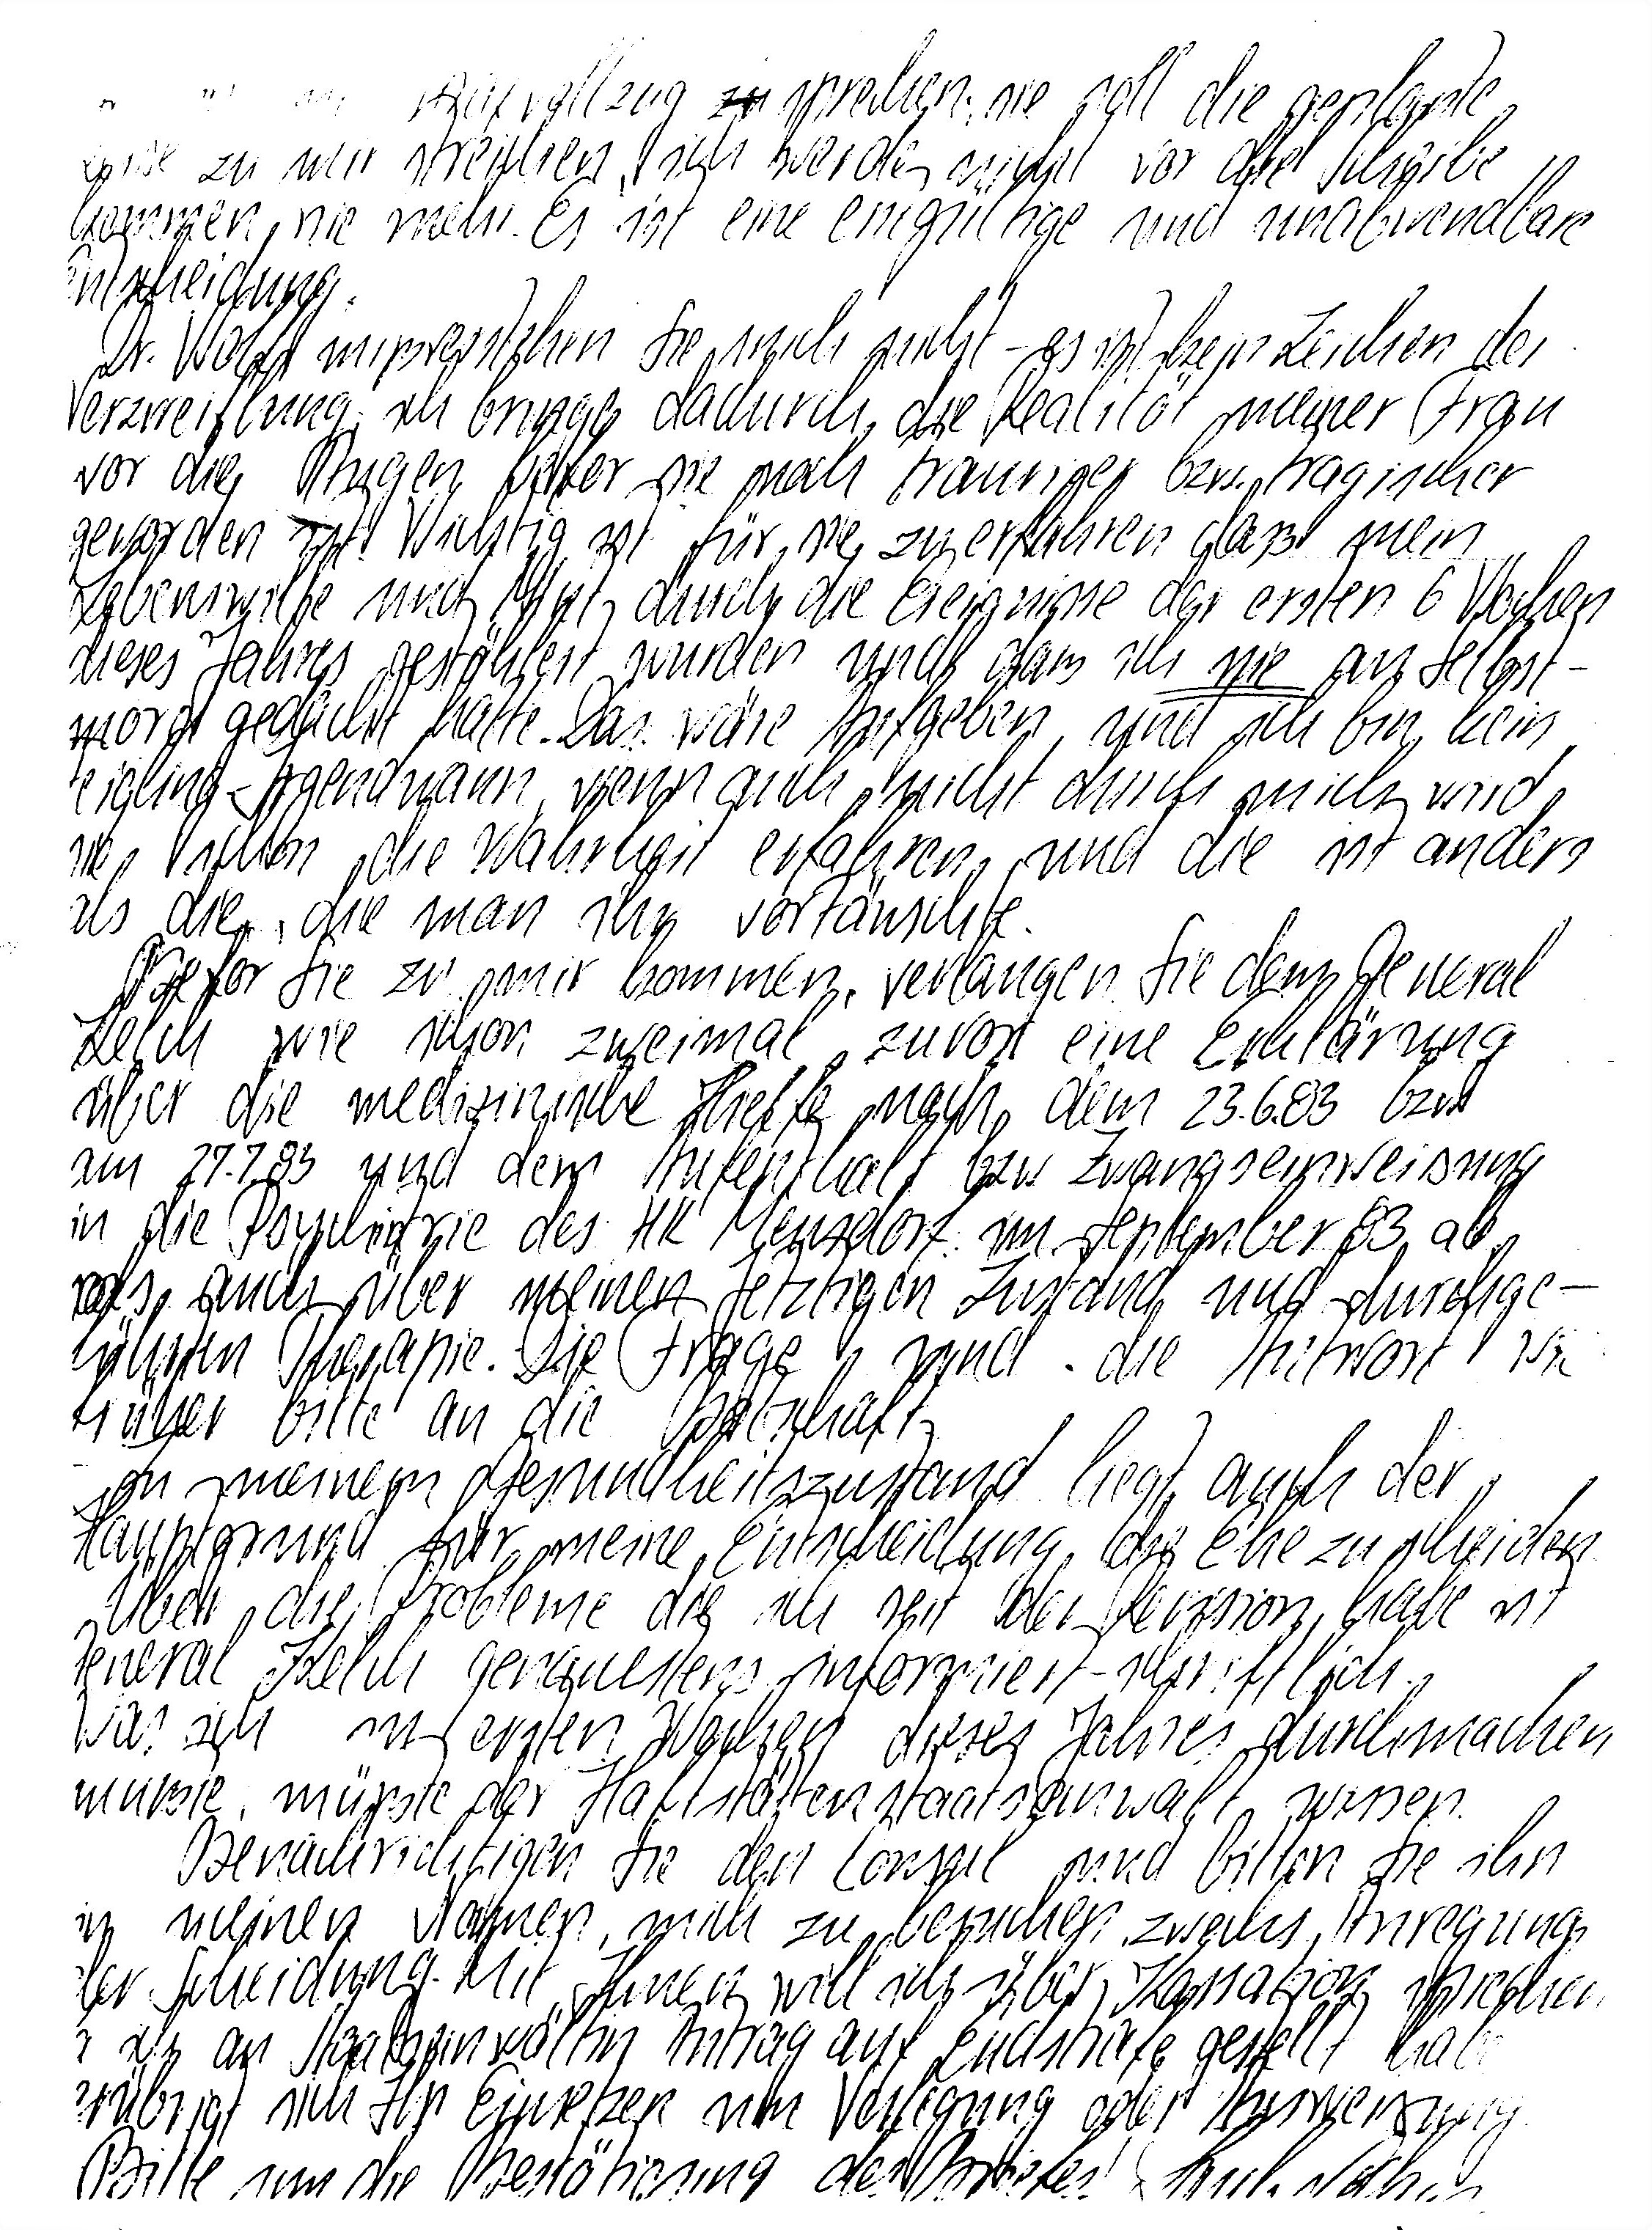 Strafvollzug zu sprechen, sie soll die geplante
Reise zu mir streichen, ich werde nicht vor die Scheibe
kommen, nie mehr. Es ist eine entgültige und unabwendbare
Entscheidung.
Dr. Wolff missverstehen Sie mich nicht - es ist kein Zeichen der
Verzweiflung, ich bringe dadurch die Realität meiner Frau
vor die Augen befor sie noch trauriger bzw. tragischer
geworden ist. Wichtig ist für sie zu erfahren dass mein
Lebenswille und Mut durch die Ereignisse der ersten 6 Wochen
dieses Jahres gestählert wurden und dass ich nie an Selbst-
mord gedacht hatte. Das wäre Aufgeben und ich bin kein
Feigling - Irgendwann, wenn auch nicht durch mich, wird
sie schon die Wahrheit erfahren, und die ist anders
als die, die man ihr vortäuschte.
Befor Sie zu mir kommen, verlangen Sie dem General
Kelch wie schon zweimal zuvor eine Erklärung
über die medizinische Hielfe nach dem 23.6.83 bzw
am 27.7.83 und dem Aufenthalt bzw Zwangseinweisung
in die Psychiatrie des HK Meusdorf im September 83 ab
als auch über meinen jetzigen Zustand und durchge-
führten Therapie. Die Frage und die Antwort wie
früher bitte an die Botschaft.
In meinem Gesundheitszustand liegt auch der
Hauptgrund für meine Entscheidung die Ehe zu scheiden.
Über die Probleme die ich seit der Revision habe ist
General Kelch genauestens informiert - schriftlich.
Was ich in ersten Wochen dieses Jahres durchmachen
musste, müsste der Haftstättenstaatsanwalt wissen.
Benachrichtigen Sie den Consul und bitten Sie ihn
in meinen Namen, mich zu besuchen zwecks Anregung
der Scheidung. Mit Ihnen will ich über Kassation sprechen.
ich an Staatsanwältin Antrag auf Endstrafe gestellt habe
erübrigt sich Ihr Einsetzen um Verlegung oder Ausweisung.
Bitte um die Bestätigung des Briefes!